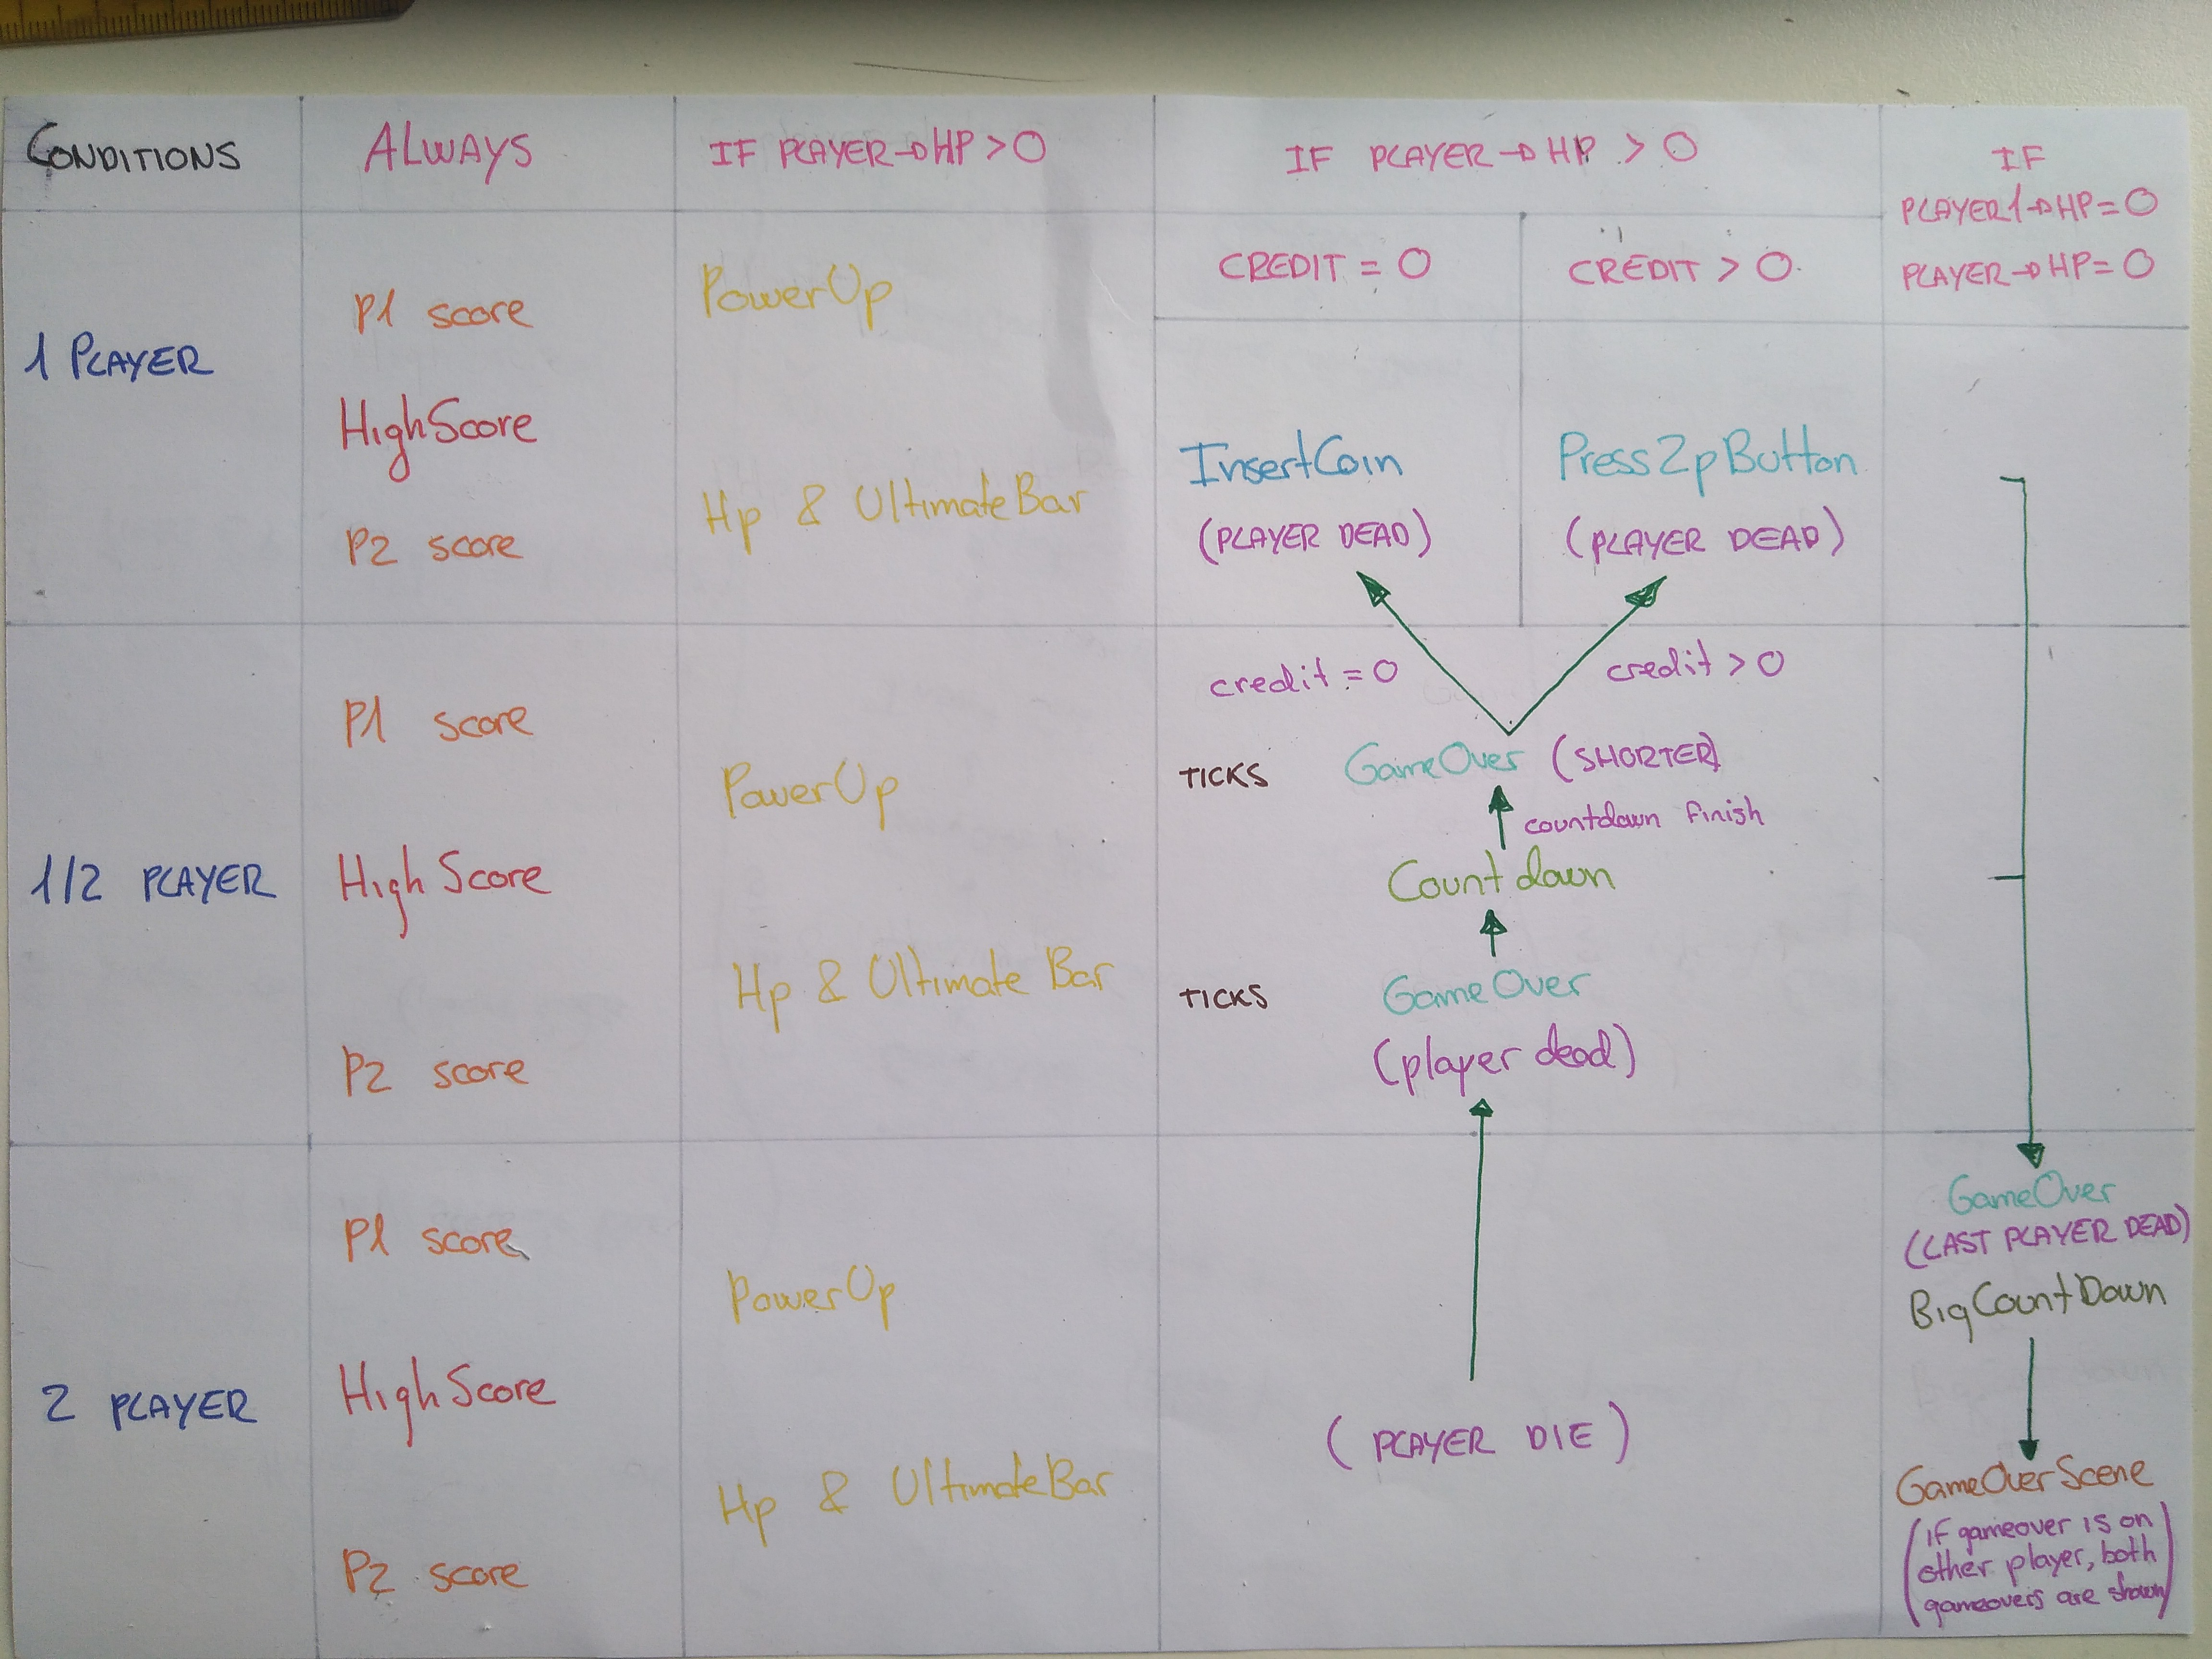 CONDITIONS
ALWAYS
IF PLAYER→HP > 0
IF PLAYER→HP > 0
IF
PLAYER1→HP=0
PLAYER→HP=0
CREDIT = 0
CREDIT > 0
1 PLAYER
P1 score
HighScore
P2 score
PowerUp
Hp & UltimateBar
InsertCoin
(PLAYER DEAD)
Press2pButton
(PLAYER DEAD)
1/2 PLAYER
P1 score
HighScore
P2 score
PowerUp
Hp & Ultimate Bar
credit = 0
credit > 0
TICKS
GameOver (SHORTER)
countdown finish
Countdown
TICKS
GameOver
(player dead)
2 PLAYER
P1 score
HighScore
P2 score
PowerUp
Hp & UltimateBar
(PLAYER DIE)
GameOver
(LAST PLAYER DEAD)
BigCountDown
GameOverScene
(if gameover is on
other player, both
gameovers are shown)